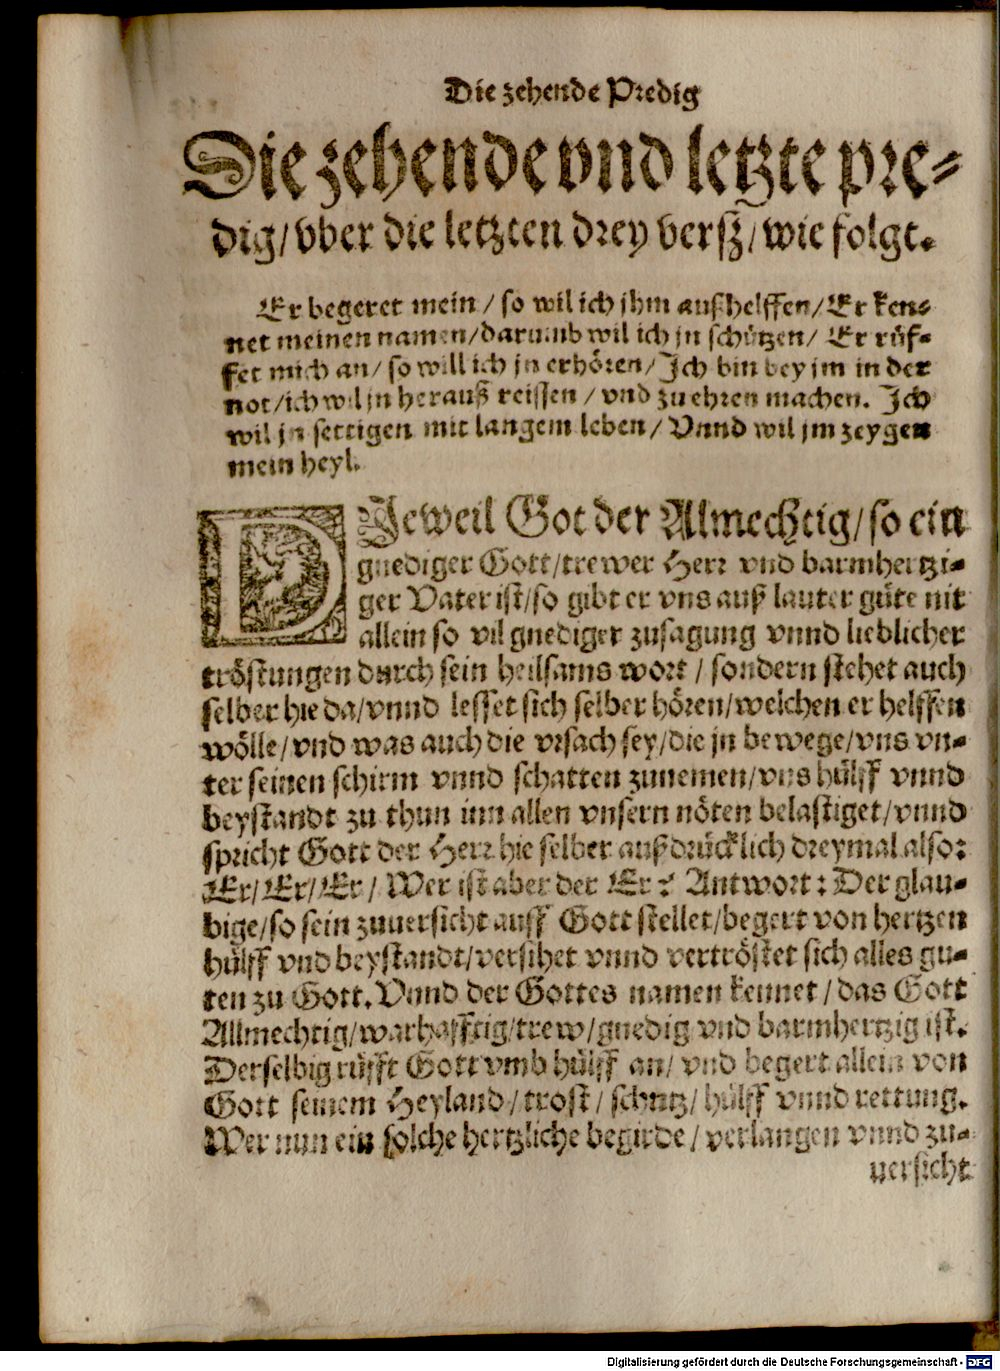 Die zehende Predig
Die zehende vnd letzte pre-
dig/vber die letzten drey versz/wie folgt.
Er begeret mein/so wil ich jhm außhelffen/Er ken-
net meinen namen/darumb wil ich jn schützen/ Er rüf-
fet mich an/so will ich jn erhören/Ich bin bey jm in der
not/ich wil jn herauß reissen/vnd zu ehren machen. Ich
wil jn settigen mit langem leben/Vnnd wil jm zeygen
mein heyl.
DJeweil Got der Almechtig/so ein
gnediger Gott/trewer Herr vnd barmhertzi-
ger Vater ist/so gibt er vns auß lauter güte nit
allein so vil gnediger zusagung vnnd lieblicher
tröstungen durch sein heilsams wort/sondern stehet auch
selber hie da/vnnd lesset sich selber hören/welchen er helffen
wölle/vnd was auch die vrsach sey/die jn bewege/vns vn-
ter seinen schirm vnnd schatten zunemen/vns hülff vnnd
beystandt zu thun inn allen vnsern nöten belastiget/vnnd
spricht Gott der Herr hie selber außdrücklich dreymal also:
Er/Er/Er/Wer ist aber der Er? Antwort: Der glau-
bige/so sein zuuersicht auff Gott stellet/begert von hertzen
hülff vnd beystandt/versihet vnnd vertröstet sich alles gu-
ten zu Gott. Vnnd der Gottes namen kennet/das Gott
Allmechtig/warhafftig/trew/gnedig vnd barmhertzig ist.
Derselbig rüfft Gott vmb hülff an/vnd begert allein von
Gott seinem Heyland/trost/schutz/hülff vnnd rettung.
Wer nun ein solche hertzliche begirde/verlangen vnnd zu-
uersicht
Digitalisierung gefördert durch die Deutsche Forschungsgemeinschaft - DFG